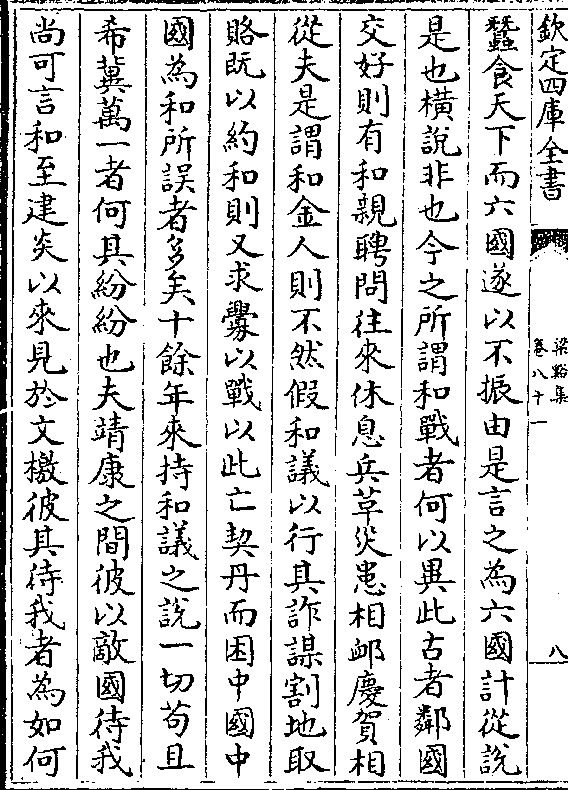 欽定四庫全書
梁谿集
卷八十一
八
蠶食天下而六國遂以不振由是言之為六國計從說
是也橫說非也今之所謂和戰者何以異此古者鄰國
交好則有和親聘問往來休息兵革災患相䘏慶賀相
從夫是謂和金人則不然假和議以行其詐謀割地取
賂既以約和則又求釁以戰以此亡契丹而困中國中
國為和所誤者多矣十餘年來持和議之說一切苟且
希冀萬一者何其紛紛也夫靖康之間彼以敵國待我
尚可言和至建炎以來見於文檄彼其待我者為如何